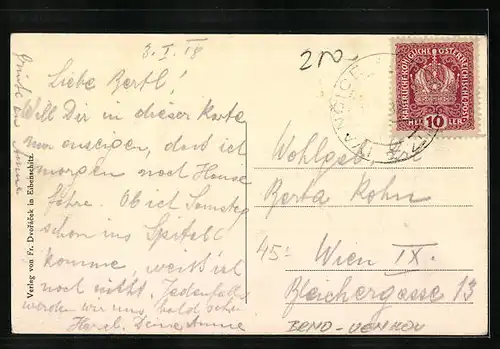 3. I. 18
Liebe Bertl!
Will Dir in dieser Karte
nur anzeigen, dass ich
morgen nach Hause
fahre. Ob ich Samstag
schon ins Spital
komme, weiß ist
noch nicht. Jedenfalls
werden wir uns bald sehen
Herzl. Deine Anna
Verlag von Fr. Dvořáček in Eibenschitz.
200.-
KAISERLICHE KÖNIGLICHE ÖSTERREICHISCHE POST
HELLER 10
Wohlgeb
Berta Kohn
45-
Wien IX.
Bleichergasse 13
BRNO-VENKOV